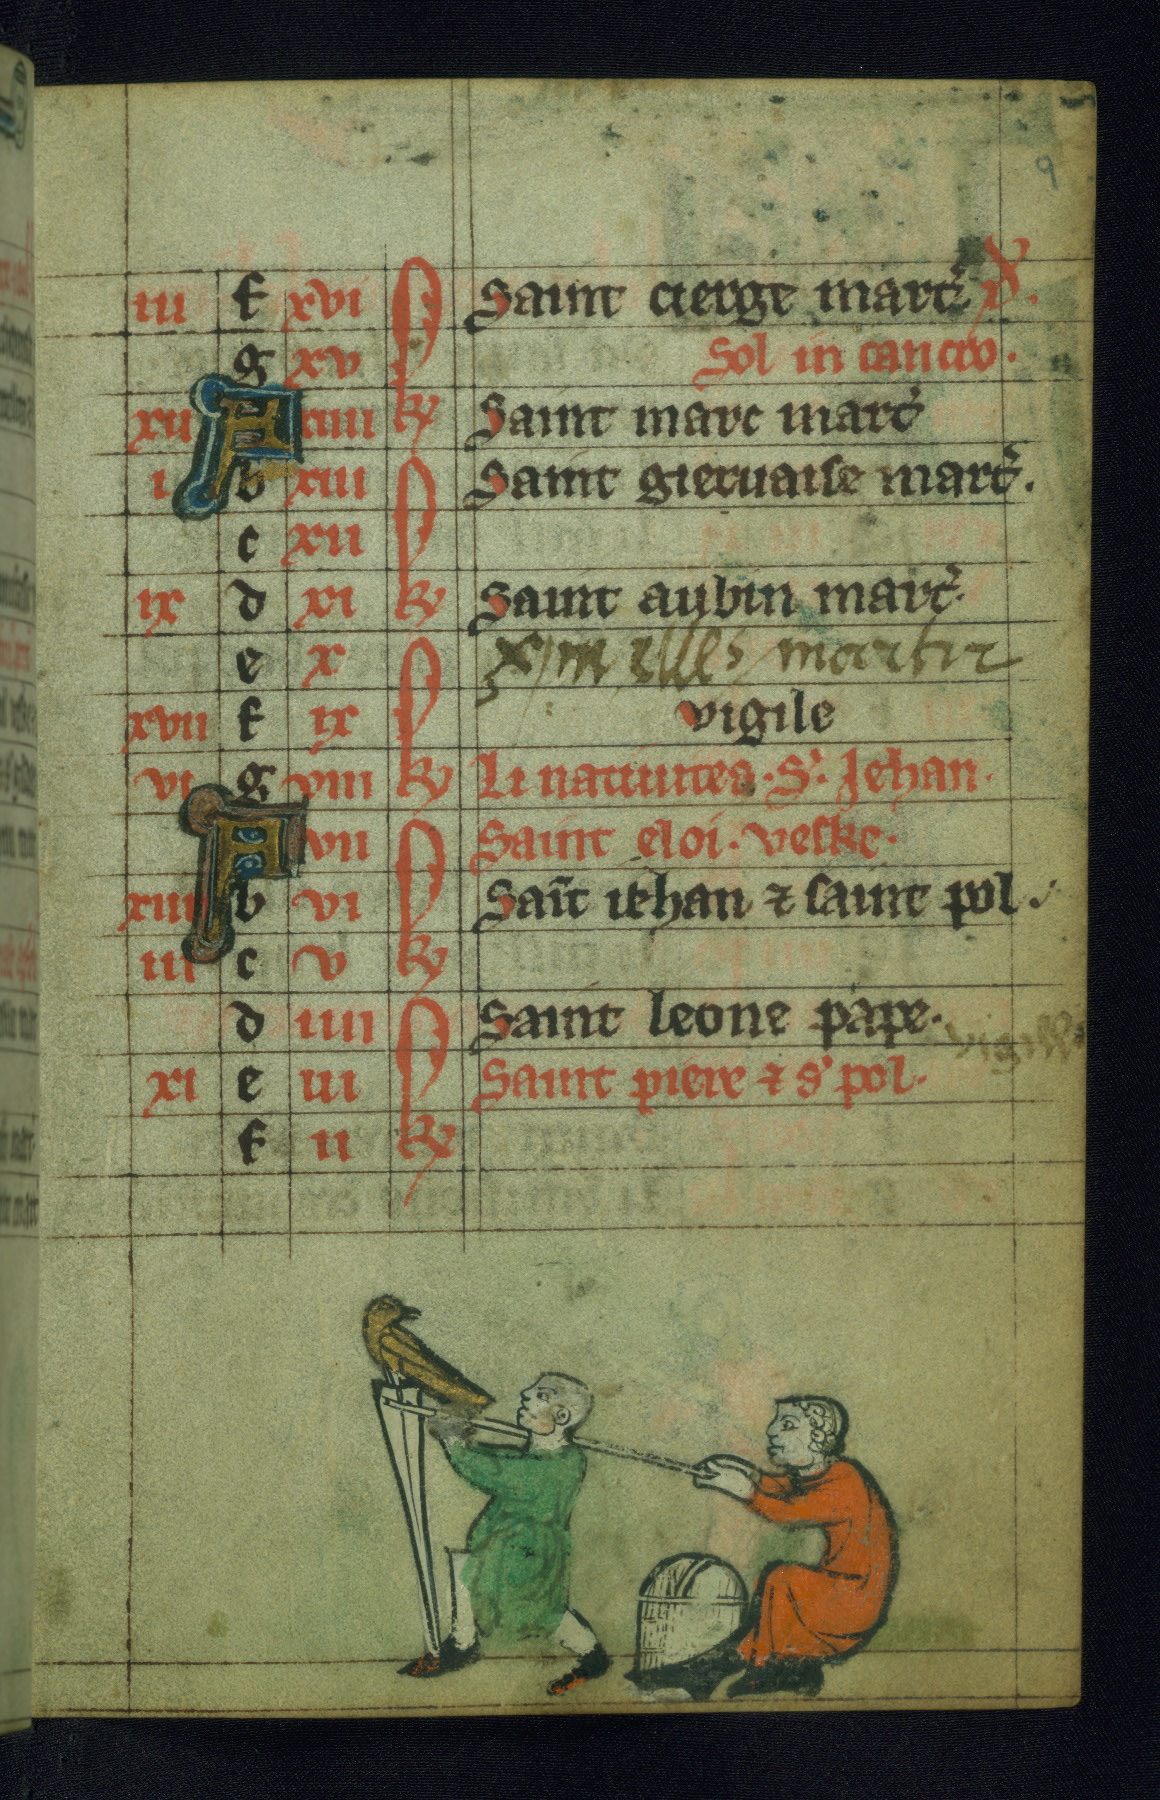 9
iii f xvi k Saint cierge mart̃. D.
g xv Sol in cancro.
xii A xiiii k Saint marc mart̃
i b xiii Saint gieruaise mart̃.
c xii
ix d xi k Saint aubin mart̃.
e x martir
xvii f ix vigile
vi g viii k Li natiuites. S'. Jehan.
A vii Saint eloi. veske.
xiiii b vi Sait̃ iehan ⁊ saint pol.
iii c v k
d iiii Saint leone pape. vigille
xi e iii Saint piere ⁊ s' pol.
f ii k